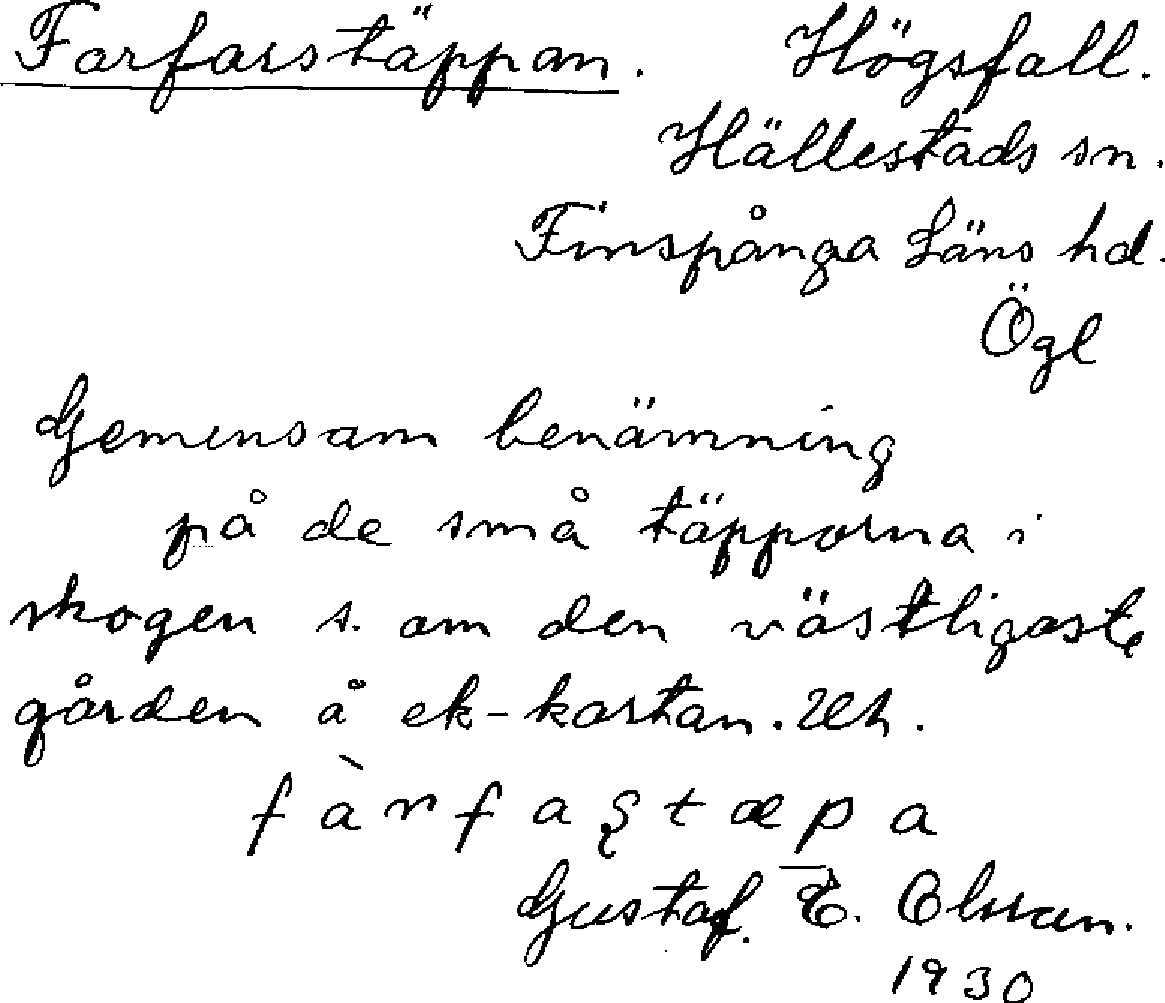 Farfarstäppan. Högsfall.
Hällestads sn.
Finspånga Läns hd.
Ögl
Gemensam benämning
på de små täpporna i
skogen s. om den västligaste
gården å ek-kartan. Uh.
f à r f a ş t æ p a
Gustaf. E. Olsson.
1930